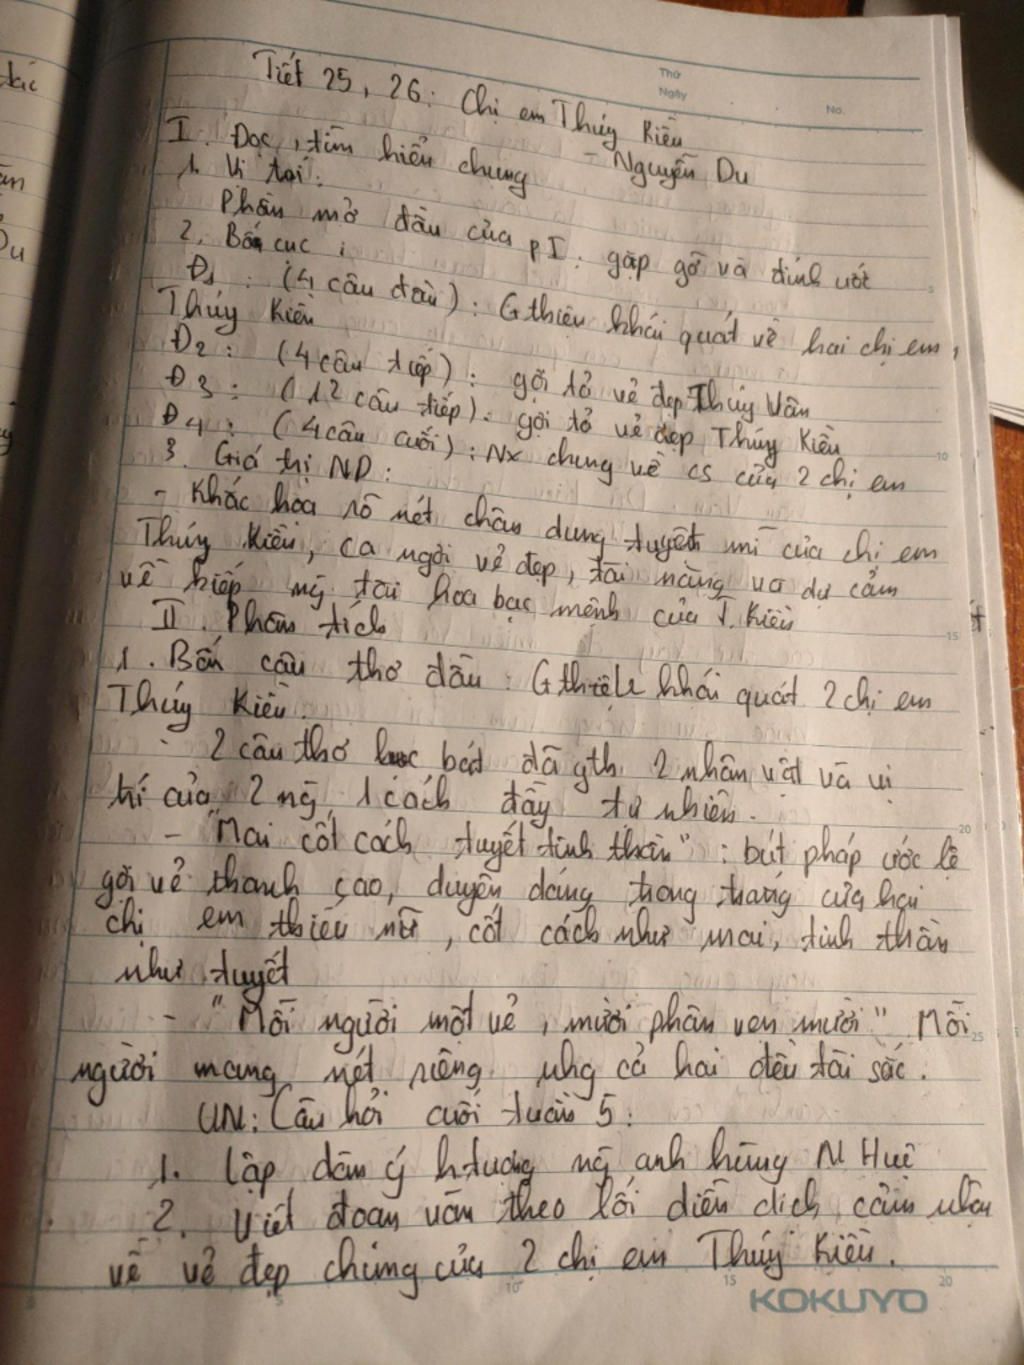 Thứ
Ngày
No.
Tiết 25, 26: Chị em Thúy Kiều
- Nguyễn Du
I. Đọc, tìm hiểu chung
1. Vị trí:
Phần mở đầu của pI: gặp gỡ và đính ước
2. Bố cục:
Đ1: (4 câu đầu): Gthiệu khái quát về hai chị em
Thúy Kiều
Đ2: (4 câu tiếp): gợi tả vẻ đẹp Thúy Vân
Đ3: (12 câu tiếp): gợi tả vẻ đẹp Thúy Kiều
Đ4: (4 câu cuối): Nx chung về cs của 2 chị em
3. Giá trị ND:
- Khắc họa rõ nét chân dung tuyệt mĩ của chị em
Thúy Kiều, ca ngợi vẻ đẹp, tài năng và dự cảm
về kiếp ng tài hoa bạc mệnh của T. Kiều
II. Phân tích
1. Bốn câu thơ đầu: Gthiệu khái quát 2 chị em
Thúy Kiều.
- 2 câu thơ lục bát đã gth 2 nhân vật và vị
trí của 2 ng 1 cách đầy tự nhiên.
- "Mai cốt cách tuyết tinh thần": bút pháp ước lệ
gợi vẻ thanh cao, duyên dáng trong trắng của hai
chị em thiếu nữ, cốt cách như mai, tinh thần
như tuyết
- "Mỗi người một vẻ, mười phân vẹn mười" Mỗi
người mang nét riêng nhg cả hai đều tài sắc.
VN: Câu hỏi cuối tuần 5:
1. Lập dàn ý htượng ng anh hùng N Huệ
2. Viết đoạn văn theo lối diễn dịch cảm nhận
về vẻ đẹp chung của 2 chị em Thúy Kiều.
KOKUYO